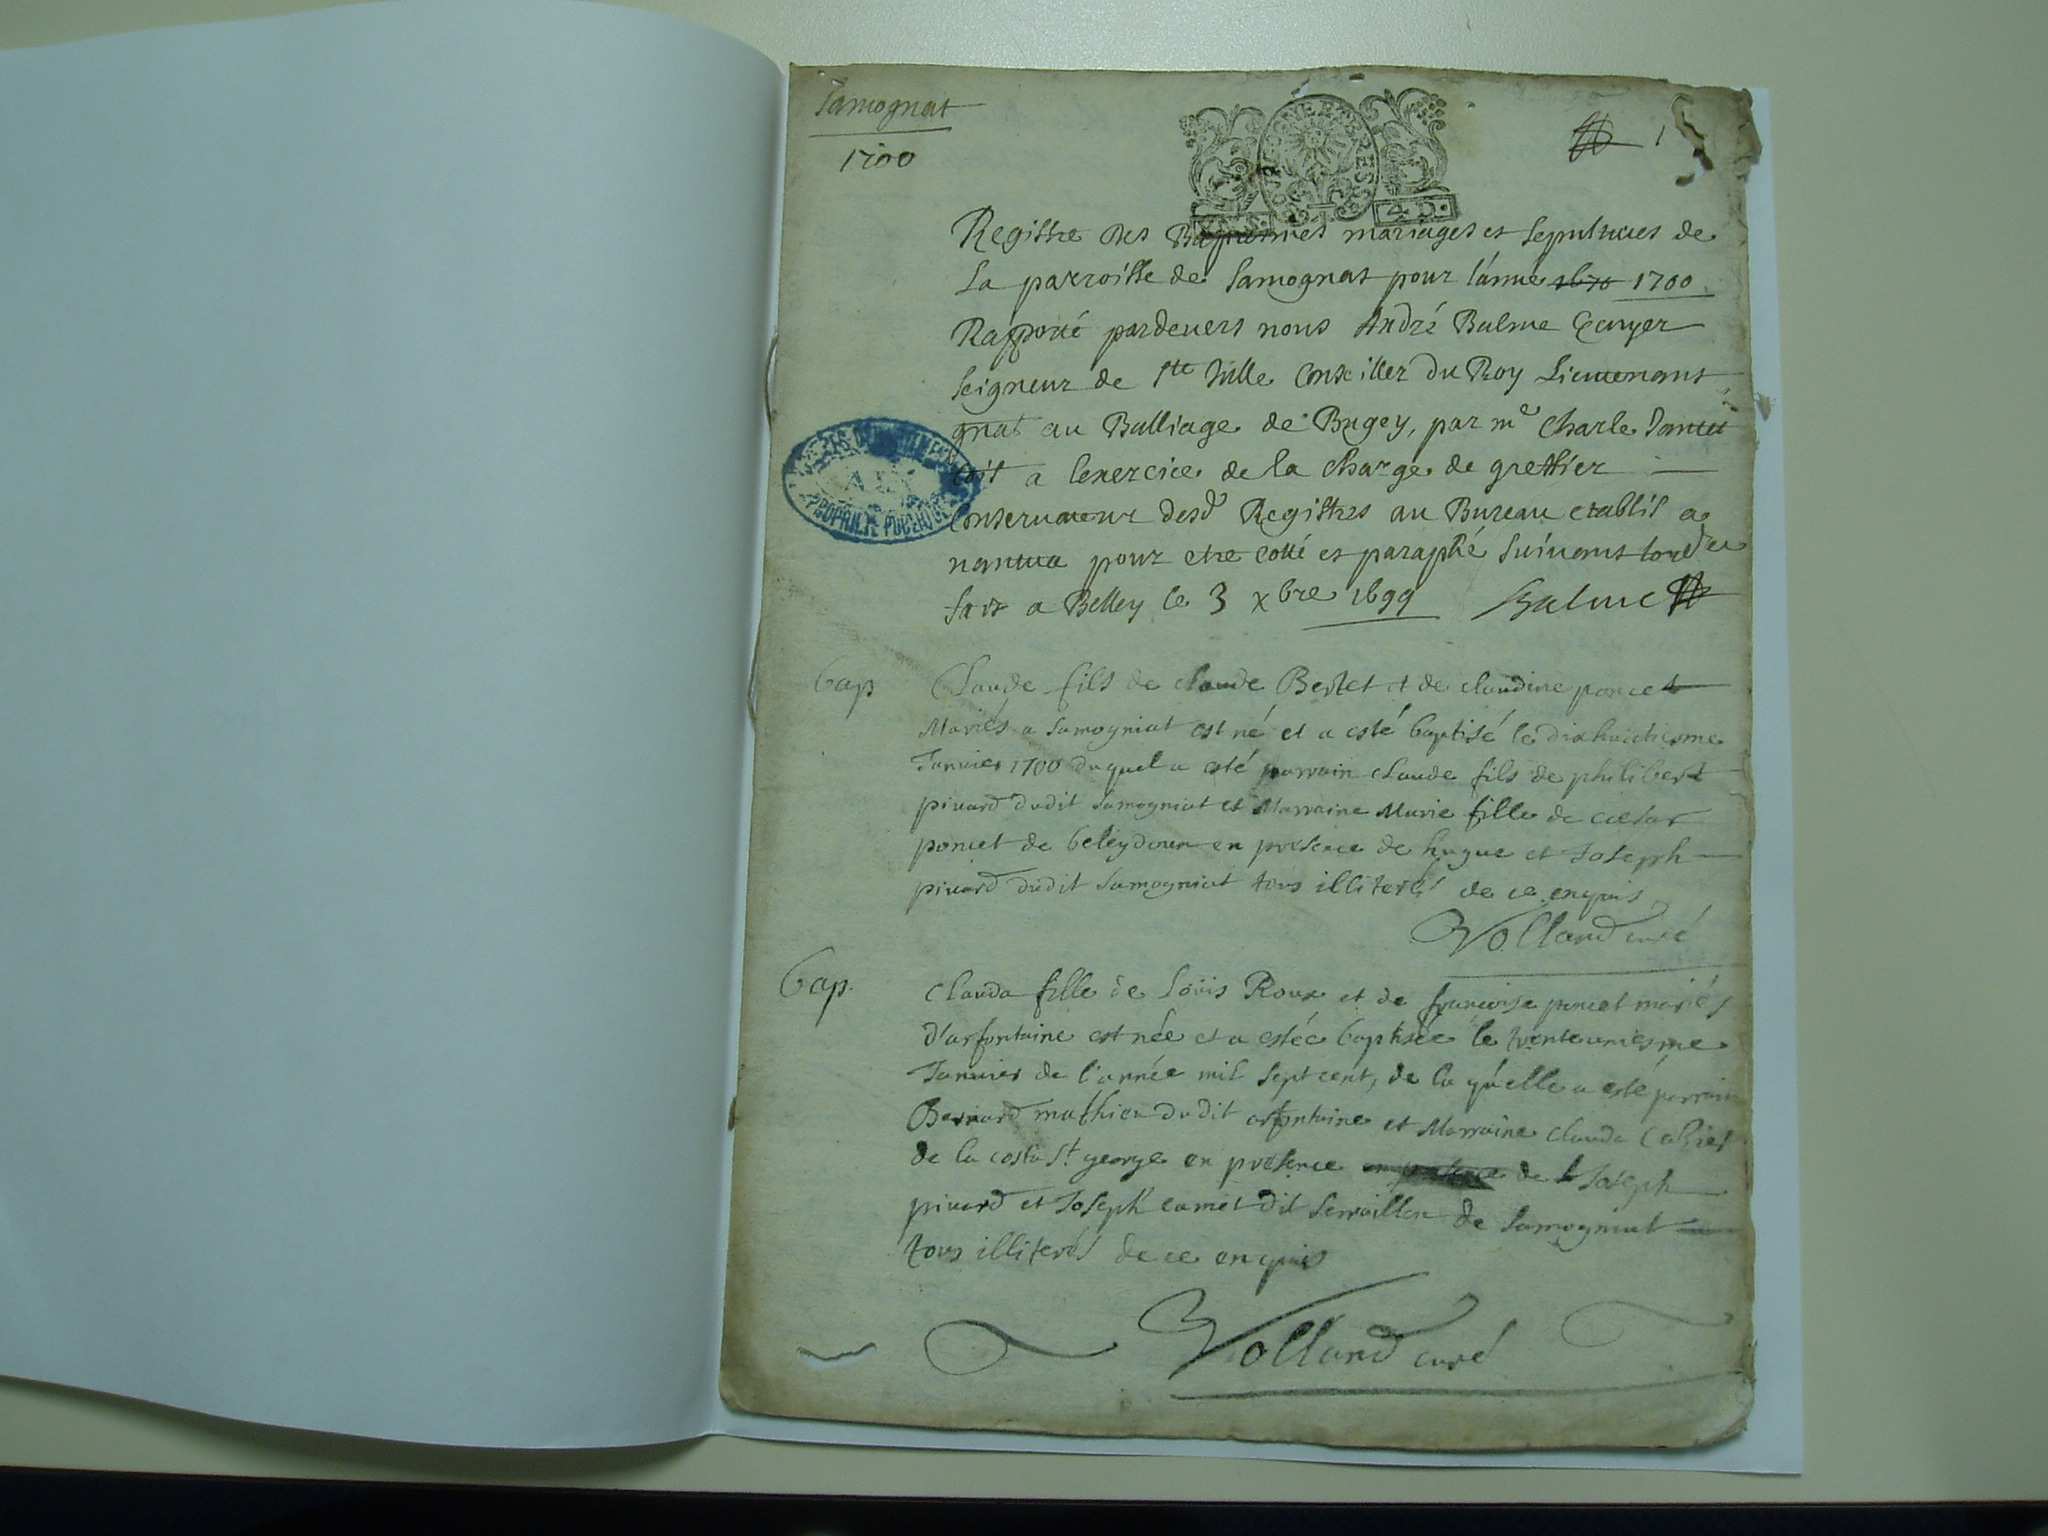 Samognat
1700
1
4 D.
Registre des Baptesmes mariages et sepultures de
La parroisse de Samognat pour l'année 1670 1700
Rapporté pardevers nous André Balme Ecuyer
seigneur de Ste Julle Conseiller du Roy Lieutenant
gnal au Balliage de Bugey, par me Charle
a lexercice de la charge de greffier
Conservateur desd Registres au Bureau etablit a
nantua pour etre cotté et paraphé suivant
fait a Belley le 3 xbre 1699 Balme
PROPRIETE PUBLIQUE
bap
Claude fils de claude Berlet et de claudine poncet
Mariés a samogniat est né et a esté baptisé le dixhuictiesme
Janvier 1700 duquel a esté parrain claude fils de philibert
pivard dudit samogniat et Marraine Marie fille de caesar
poncet de beleydoux en presence de hugue et Joseph
pivard dudit samogniat tous illiterés de ce enquis
Volland curé
bap.
Clauda fille de Loüis Roux et de françoise poncet mariés
d'arfontaine est née et a estée baptisée le trenteuniesme
Janvier de l'année mil sept cent, de la quelle a esté parrain
Bernard mathieu dudit arfontaine et Marraine clauda
de la costa St. george en presence en presence de Joseph
pivard et Joseph camet dit de samogniat
tous illiterés de ce enquis
Volland curé